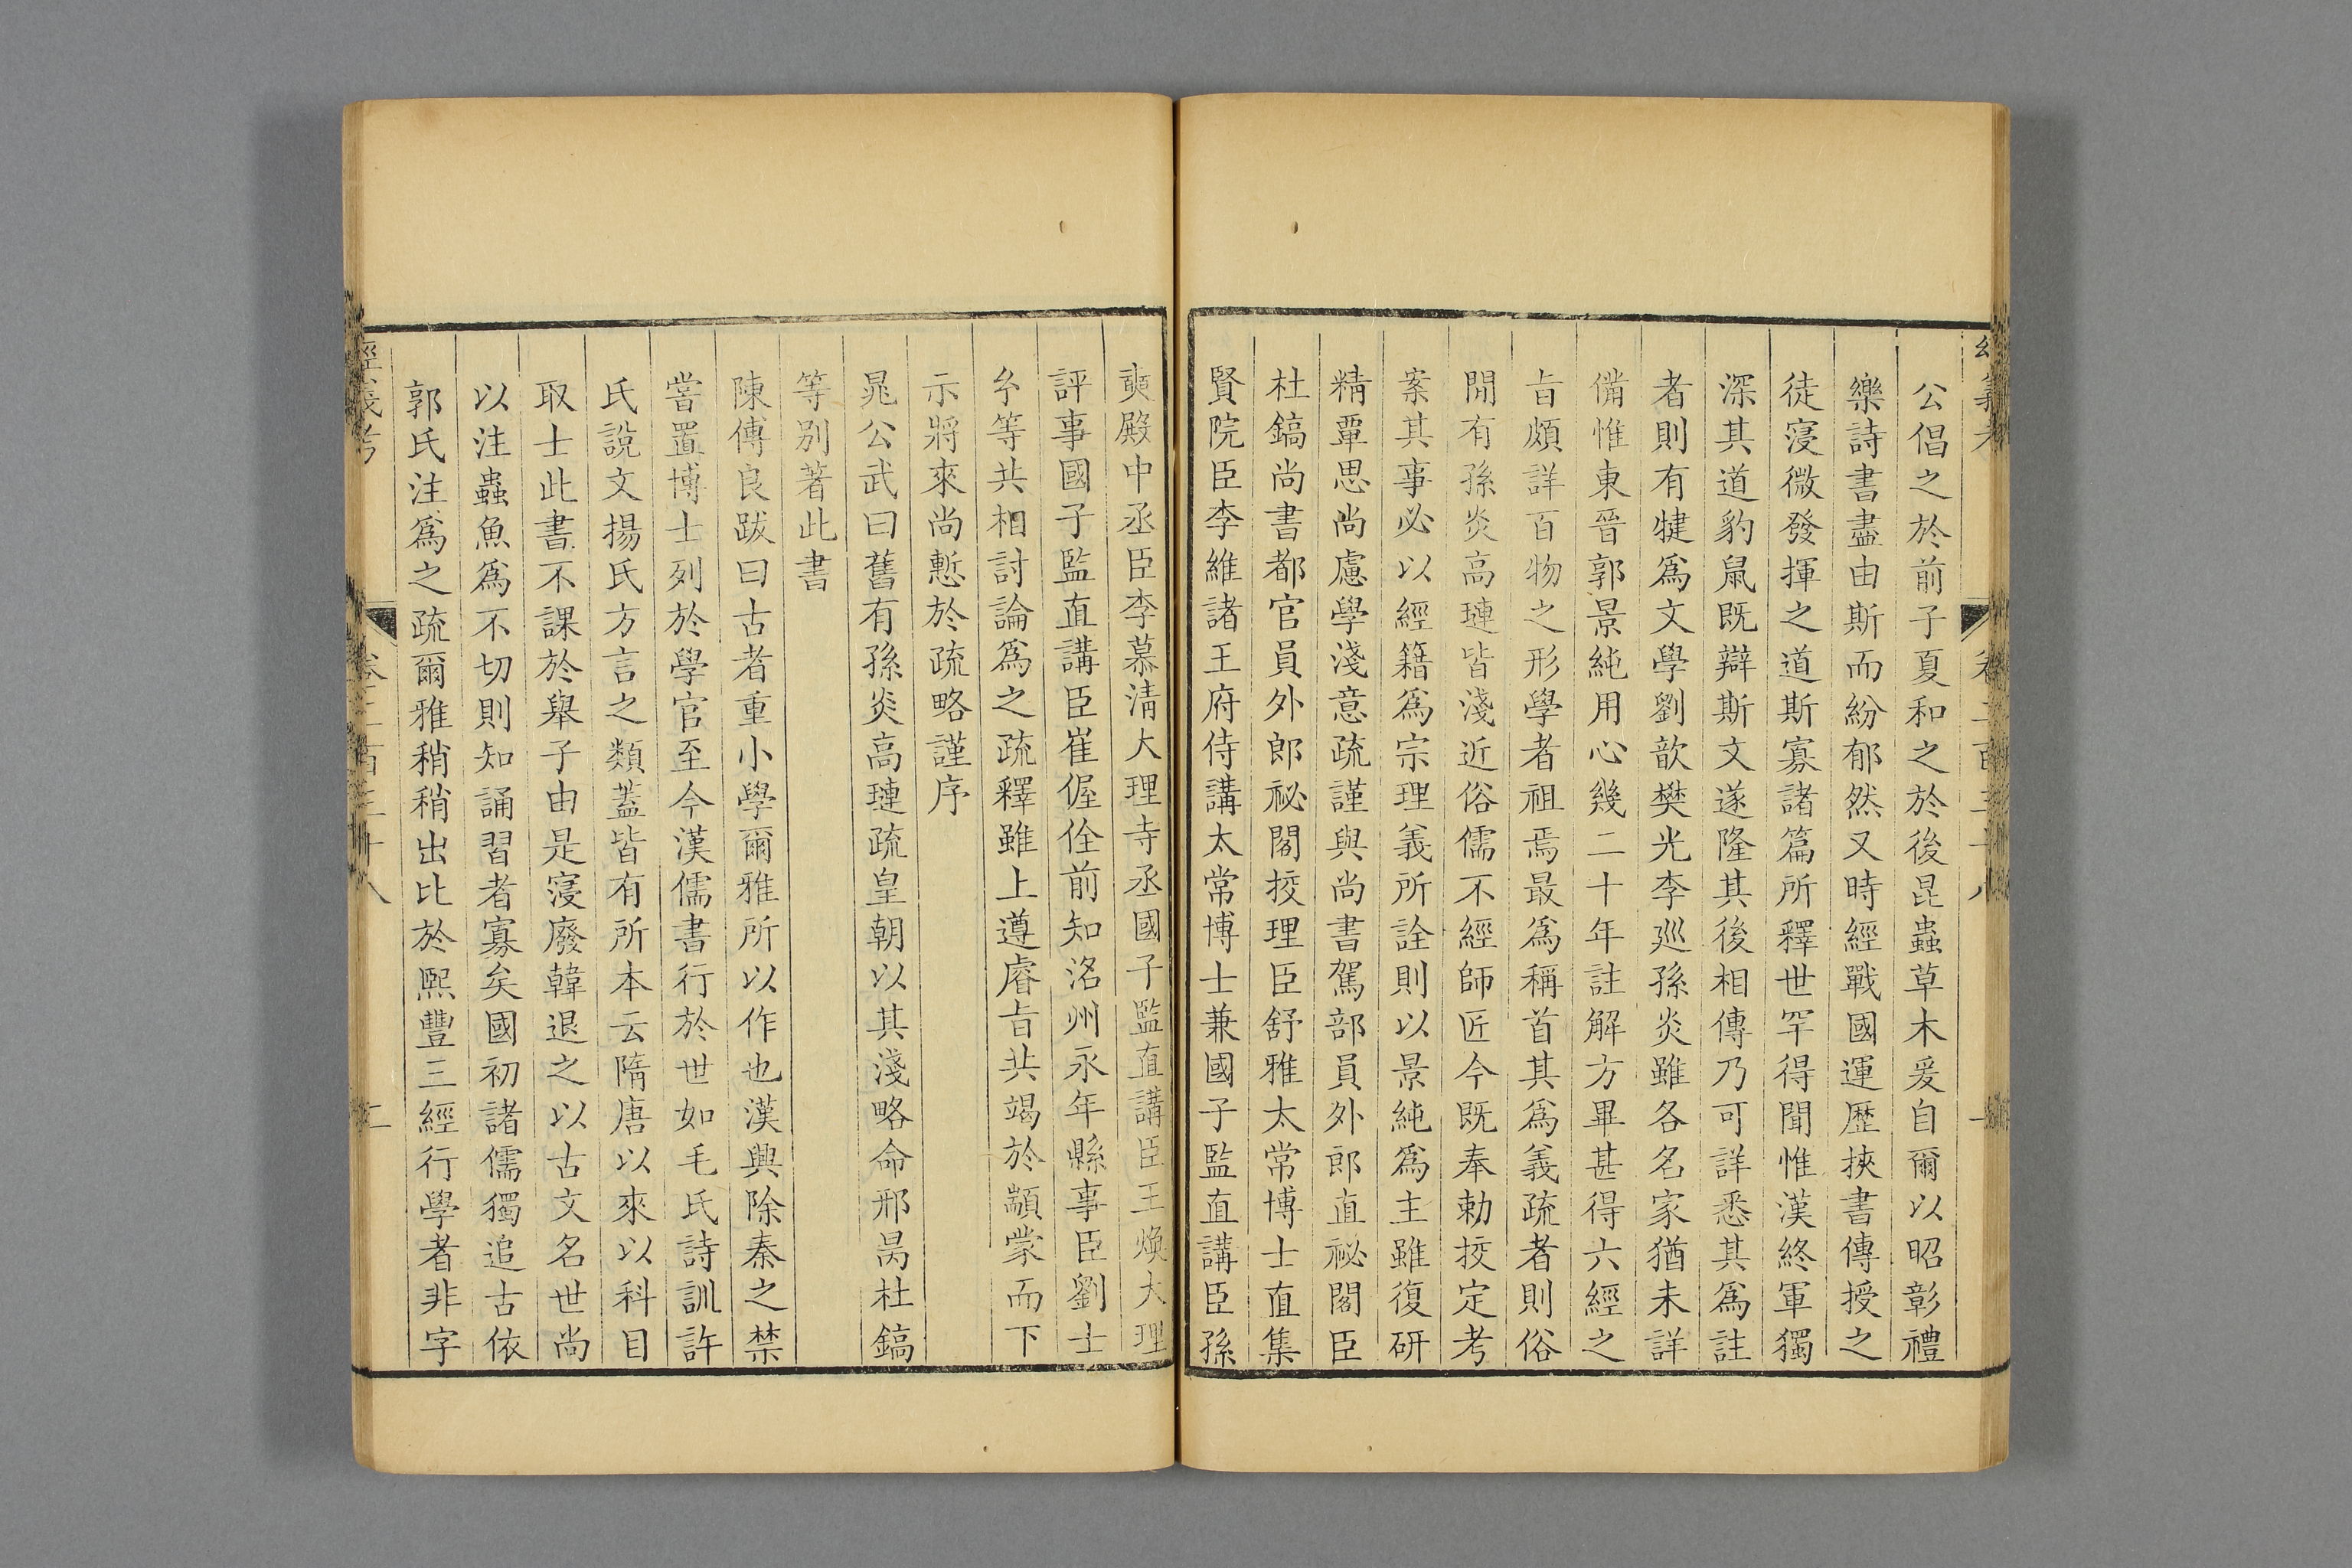 公倡之於前子夏和之於後昆蟲草木爰自爾以昭彰禮
樂詩書盡由斯而紛郁然又時經戰國運歷挾書傳授之
徒寖微發揮之道斯寡諸篇所釋世罕得聞惟漢終軍獨
深其道豹鼠既辯斯文遂隆其後相傳乃可詳悉其爲註
者則有犍爲文學劉歆樊光李廵孫炎雖各名家猶未詳
備惟東晉郭景純用心幾二十年註解方畢甚得六經之
旨頗詳百物之形學者祖焉最爲稱首其爲義疏者則俗
閒有孫炎高璉皆淺近俗儒不經師匠今既奉勅挍定考
案其事必以經籍爲宗理義所詮則以景純爲主雖復研
精覃思尚慮學淺意疏謹與尚書駕部員外郎直祕閣臣
杜鎬尚書都官員外郎祕閣挍理臣舒雅太常博士直集
賢院臣李維諸王府侍講太常博士兼國子監直講臣孫
奭殿中丞臣李慕淸大理寺丞國子監直講臣王煥大理
評事國子監直講臣崔偓佺前知洺州永年縣事臣劉士
玄等共相討論爲之疏釋雖上遵睿旨共竭於顓蒙而下
示將來尚慙於疏略謹序
晁公武曰舊有孫炎高璉疏皇朝以其淺略命邢昺杜鎬
等別著此書
陳傅良跋曰古者重小學爾雅所以作也漢興除秦之禁
嘗置博士列於學官至今漢儒書行於世如毛氏詩訓許
氏說文揚氏方言之類蓋皆有所本云隋唐以來以科目
取士此書不課於舉子由是寖廢韓退之以古文名世尚
以注蟲魚爲不切則知誦習者寡矣國初諸儒獨追古依
郭氏注爲之疏爾雅稍稍出比於熙豐三經行學者非字
經義考
卷二百三十八
二